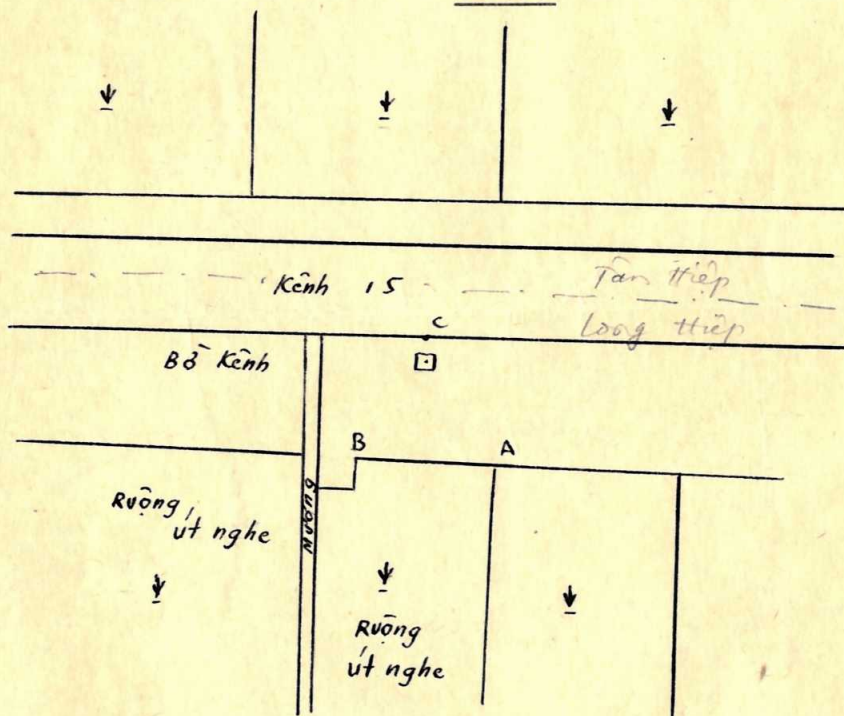 Kênh 15
Tân Hiệp
Long Hiệp
C
Bờ Kênh
B
A
Ruộng
út nghe
Mương
Ruộng
út nghe